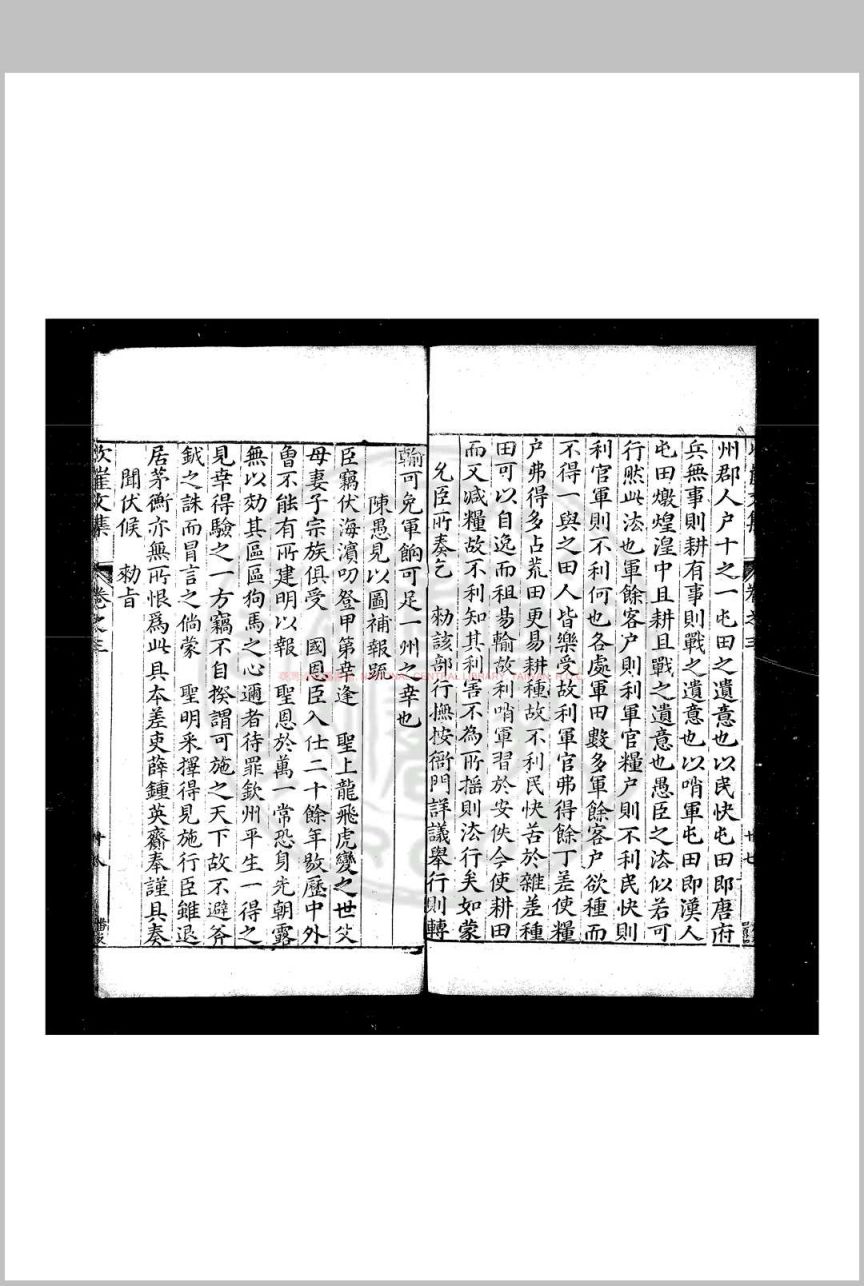 州郡人户十之一屯田之遺意也以民快屯田即唐府
兵無事則耕有事則戰之遺意也以哨軍屯田即漢人
屯田燉煌湟中且耕且戰之遺意也愚臣之法似若可
行然此法也軍餘客户則利軍官糧户則不利民快則
利官軍則不利何也各處軍田數多軍餘客户欲種而
不得一與之田人皆樂受故利軍官弗得餘丁差使糧
户弗得多占荒田更易耕種故不利民快苦於雜差種
田可以自逸而租易輸故利哨軍習於安佚今使耕田
而又減糧故不利知其利害不為所摇則法行矣如蒙
允臣所奏乞　勑該部行撫按衙門詳議舉行則轉
輸可免軍餉可足一州之幸也
陳愚見以圖補報疏
臣竊伏海濵叨登甲第幸逢　聖上龍飛虎變之世父
母妻子宗族俱受　國恩臣入仕二十餘年敭歷中外
曾不能有所建明以報　聖恩於萬一常恐身先朝露
無以効其區區狗馬之心邇者待罪欽州平生一得之
見幸得驗之一方竊不自揆謂可施之天下故不避斧
鉞之誅而冒言之倘蒙　聖明采擇得見施行臣雖退
居茅衡亦無所恨爲此具夲差吏薛鍾英齎奉謹具奏
聞伏候　勑旨
次崖文集　卷之三　廿八